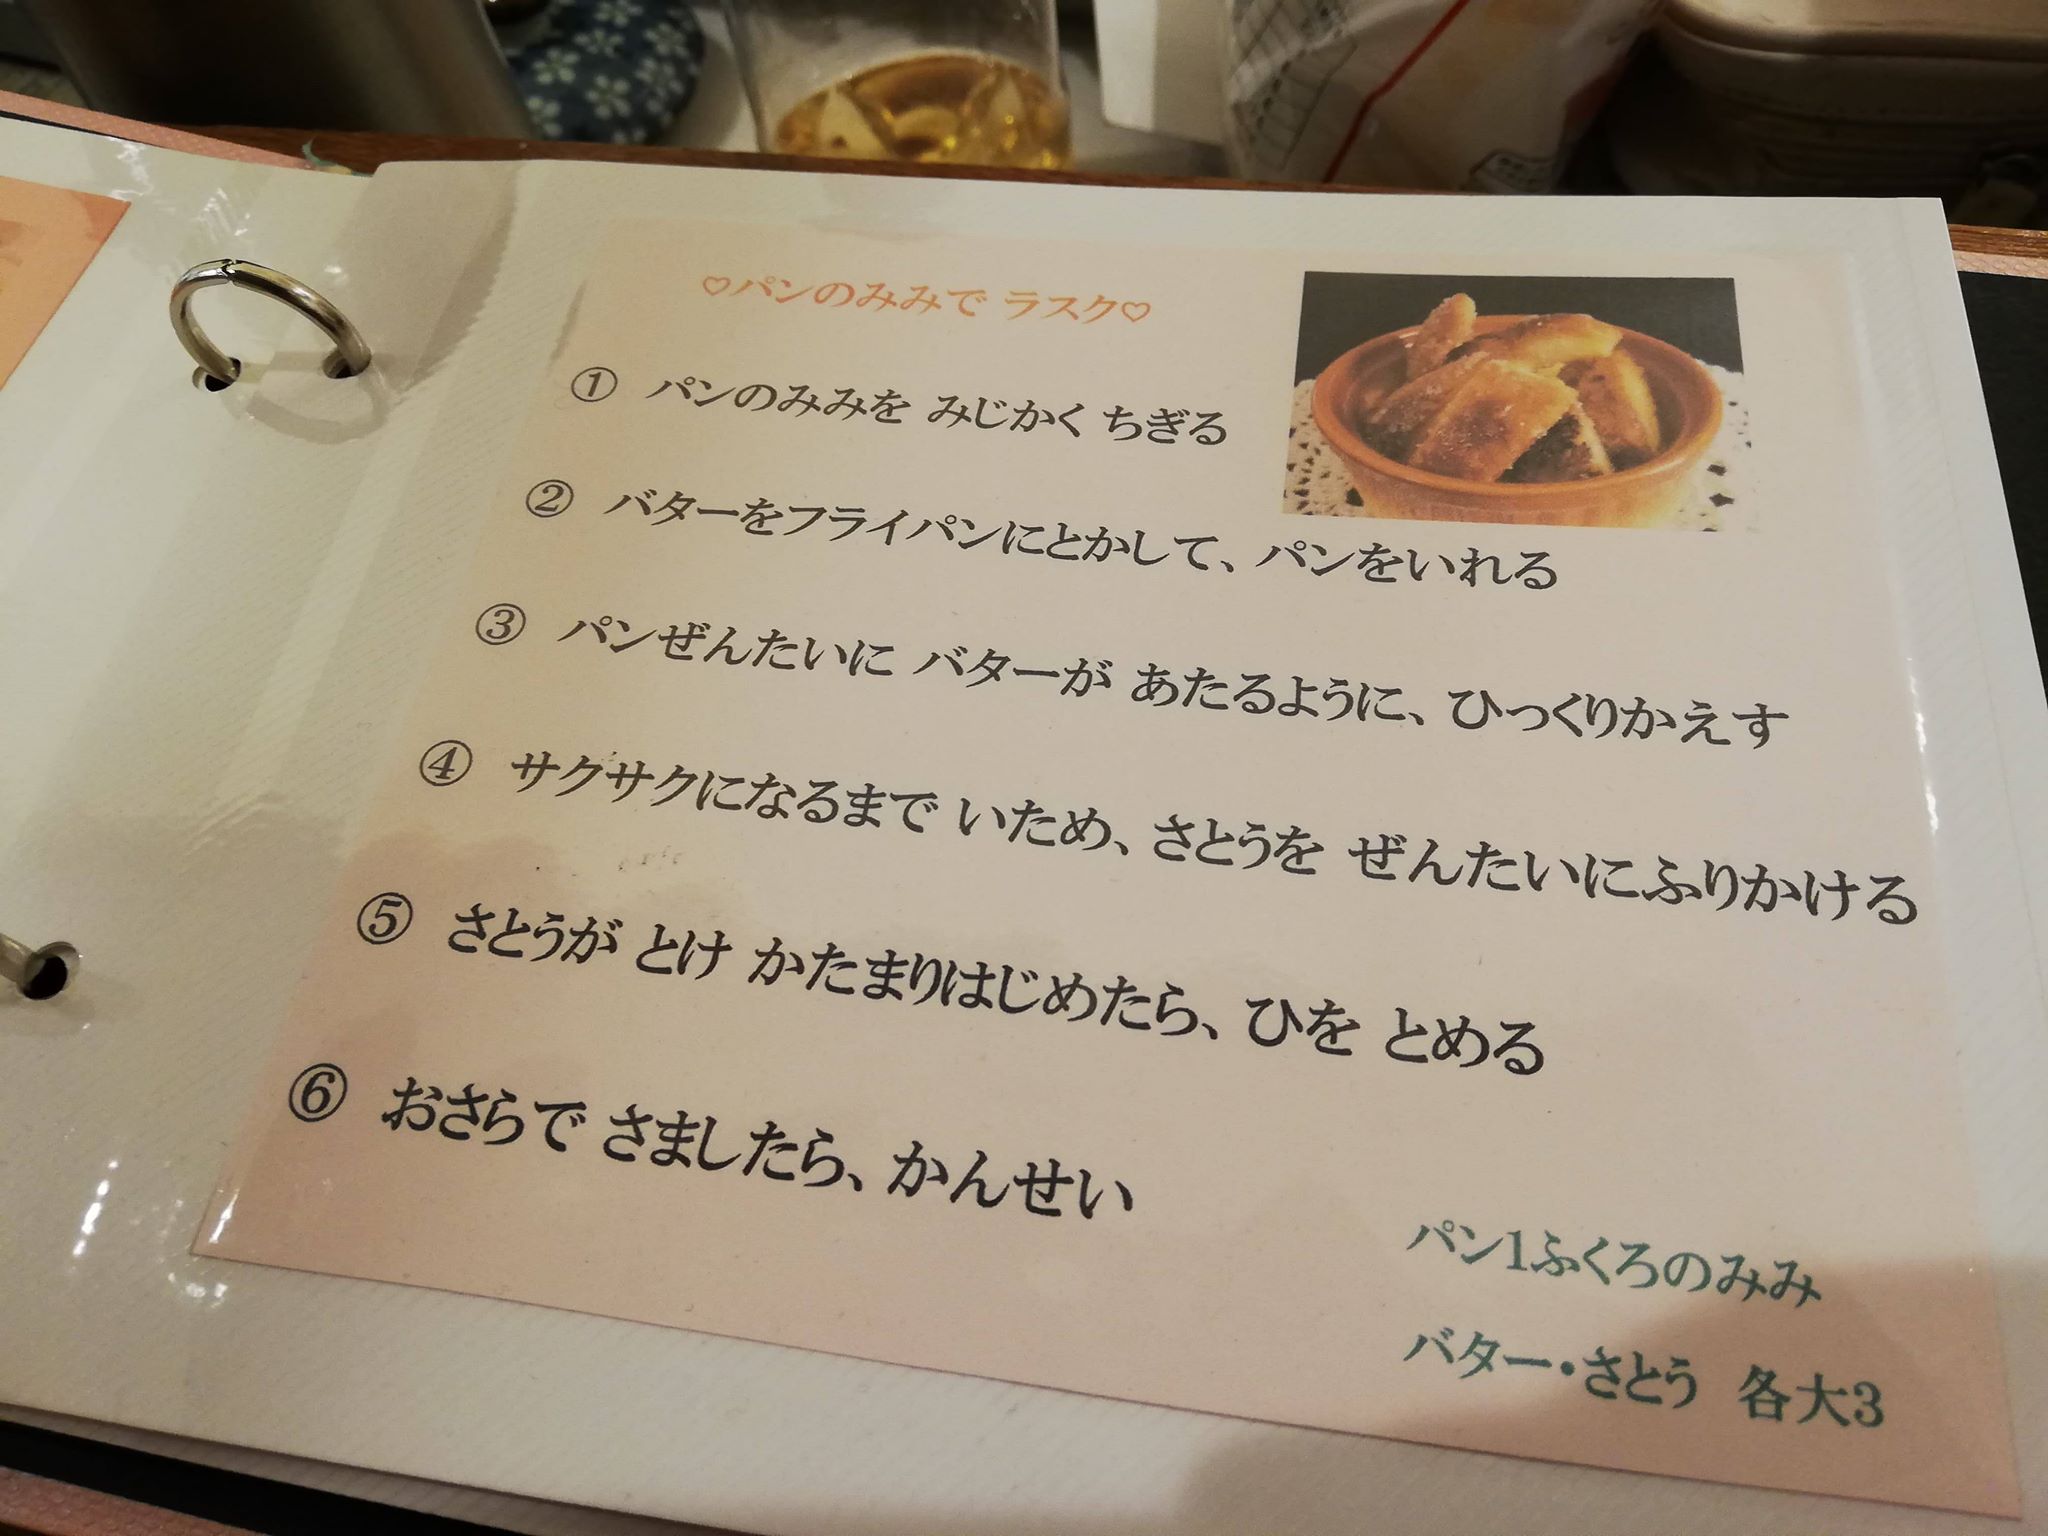 ♡パンのみみで ラスク♡
① パンのみみを みじかく ちぎる
② バターをフライパンにとかして、パンをいれる
③ パンぜんたいに バターが あたるように、ひっくりかえす
④ サクサクになるまで いため、さとうを ぜんたいにふりかける
⑤ さとうが とけ かたまりはじめたら、ひを とめる
⑥ おさらで さましたら、かんせい
パン1ふくろのみみ
バター・さとう 各大3